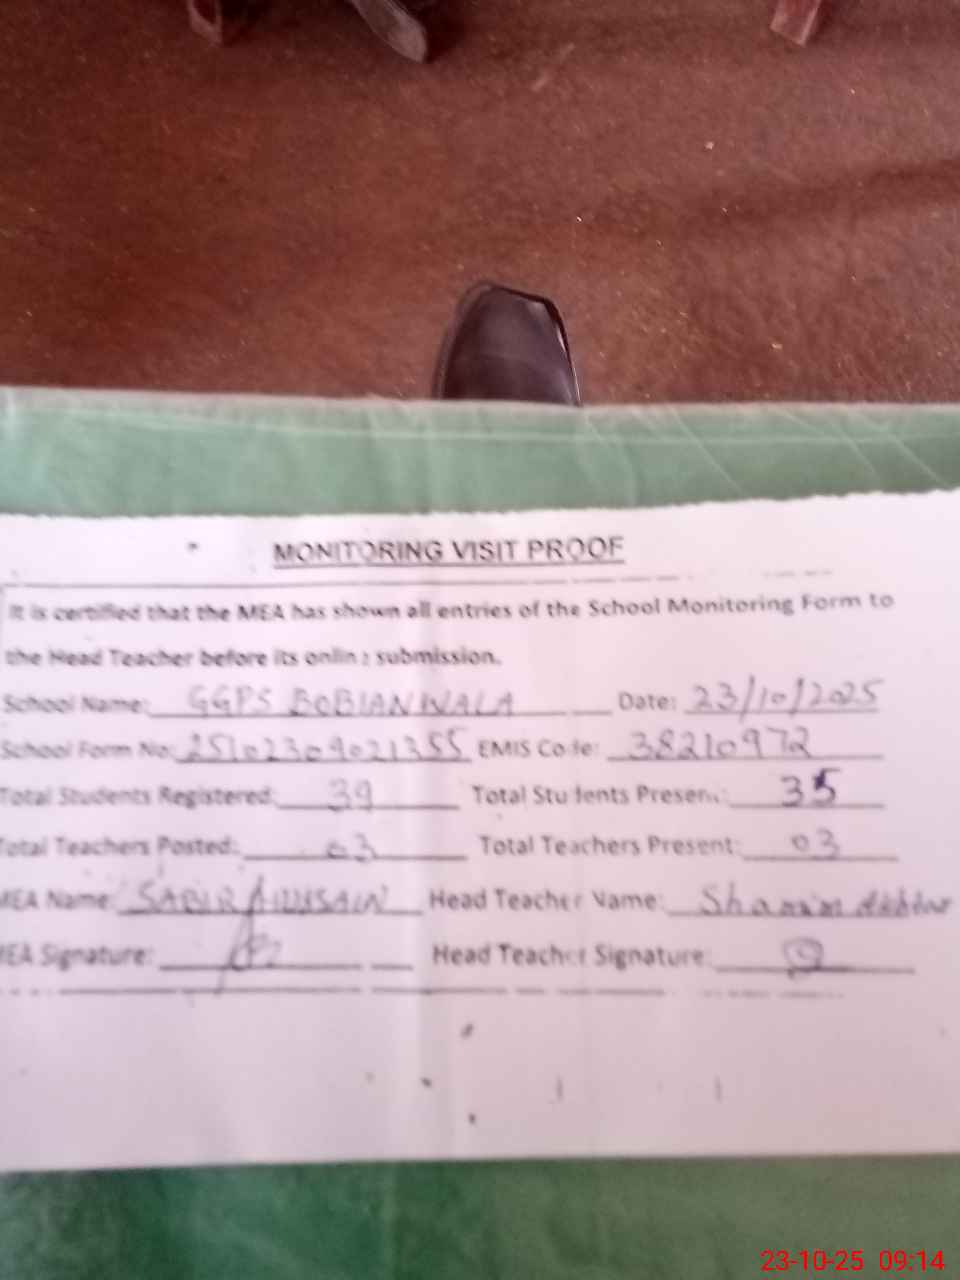 MONITORING VISIT PROOF
It is certified that the MEA has shown all entries of the School Monitoring Form to
the Head Teacher before its online submission.
School Name: GGPS BOBIANWALA Date: 23/10/2025
School Form No: 25102309021355 EMIS Code: 38210972
Total Students Registered: 39 Total Students Present: 35
Total Teachers Posted: 03 Total Teachers Present: 03
MEA Name: SABIR HUSSAIN Head Teacher Name: Shamim Akhtar
MEA Signature: Head Teacher Signature:
23-10-25 09:14